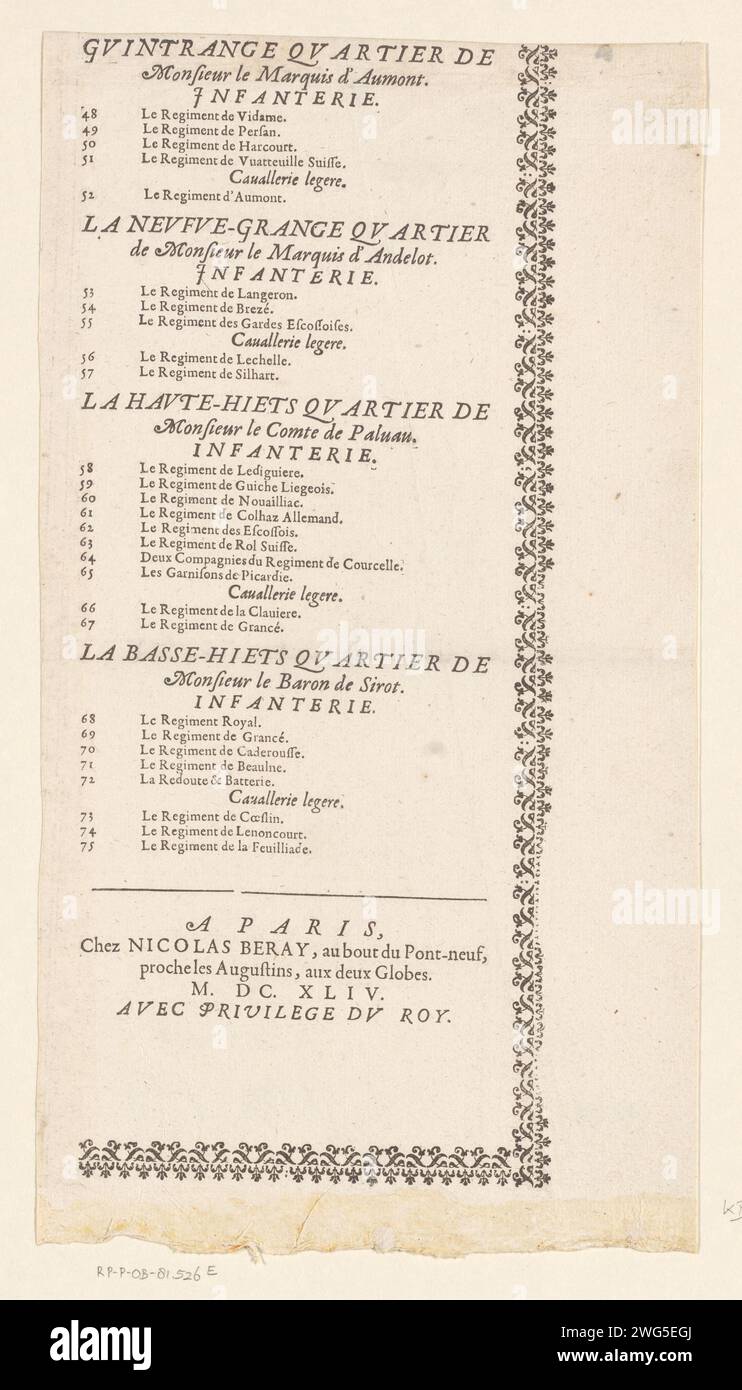 GVINTRANGE QVARTIER DE
Monſieur le Marquis d'Aumont.
INFANTERIE.
48 Le Regiment de Vidame.
49 Le Regiment de Perſan.
50 Le Regiment de Harcourt.
51 Le Regiment de Vuatteuille Suiſſe.
Cauallerie legere.
52 Le Regiment d'Aumont.
LA NEVFVE-GRANGE QVARTIER
de Monſieur le Marquis d'Andelot.
INFANTERIE.
53 Le Regiment de Langeron.
54 Le Regiment de Brezé.
55 Le Regiment des Gardes Eſcoſſoiſes.
Cauallerie legere.
56 Le Regiment de Lechelle.
57 Le Regiment de Silhart.
LA HAVTE-HIETS QVARTIER DE
Monſieur le Comte de Paluau.
INFANTERIE.
58 Le Regiment de Leſiguiere.
59 Le Regiment de Guiche Liegeois.
60 Le Regiment de Nouailliac.
61 Le Regiment de Colhaz Allemand.
62 Le Regiment des Eſcoſſois.
63 Le Regiment de Rol Suiſſe.
64 Deux Compagnies du Regiment de Courcelle.
65 Les Garniſons de Picardie.
Cauallerie legere.
66 Le Regiment de la Clauiere.
67 Le Regiment de Grancé.
LA BASSE-HIETS QVARTIER DE
Monſieur le Baron de Sirot.
INFANTERIE.
68 Le Regiment Royal.
69 Le Regiment de Grancé.
70 Le Regiment de Caderouſſe.
71 Le Regiment de Beaulne.
72 La Redoute & Batterie.
Cauallerie legere.
73 Le Regiment de Cœſlin.
74 Le Regiment de Lenoncourt.
75 Le Regiment de la Feuilliade.
A PARIS,
Chez NICOLAS BERAY, au bout du Pont-neuf,
proche les Auguſtins, aux deux Globes.
M. DC. XLIV.
AVEC PRIVILEGE DV ROY.
RP-P-OB-81.526 E
alamy
Image ID: 2WG5EGJ
www.alamy.com